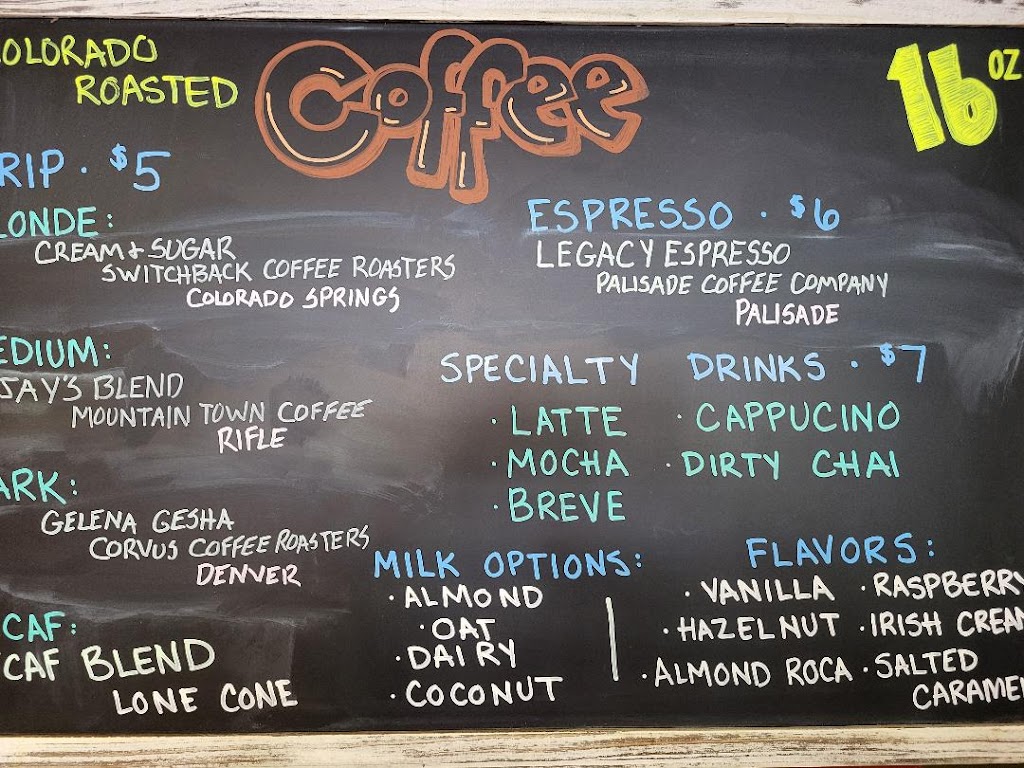 COLORADO
ROASTED
Coffee
16 OZ
DRIP · $5
BLONDE:
CREAM & SUGAR
SWITCHBACK COFFEE ROASTERS
COLORADO SPRINGS
MEDIUM:
JAY'S BLEND
MOUNTAIN TOWN COFFEE
RIFLE
DARK:
GELENA GESHA
CORVUS COFFEE ROASTERS
DENVER
DECAF:
DECAF BLEND
LONE CONE
ESPRESSO · $6
LEGACY ESPRESSO
PALISADE COFFEE COMPANY
PALISADE
SPECIALTY DRINKS · $7
· LATTE · CAPPUCINO
· MOCHA · DIRTY CHAI
· BREVE
MILK OPTIONS:
· ALMOND
· OAT
· DAIRY
· COCONUT
FLAVORS:
· VANILLA · RASPBERRY
· HAZELNUT · IRISH CREAM
· ALMOND ROCA · SALTED
CARAMEL